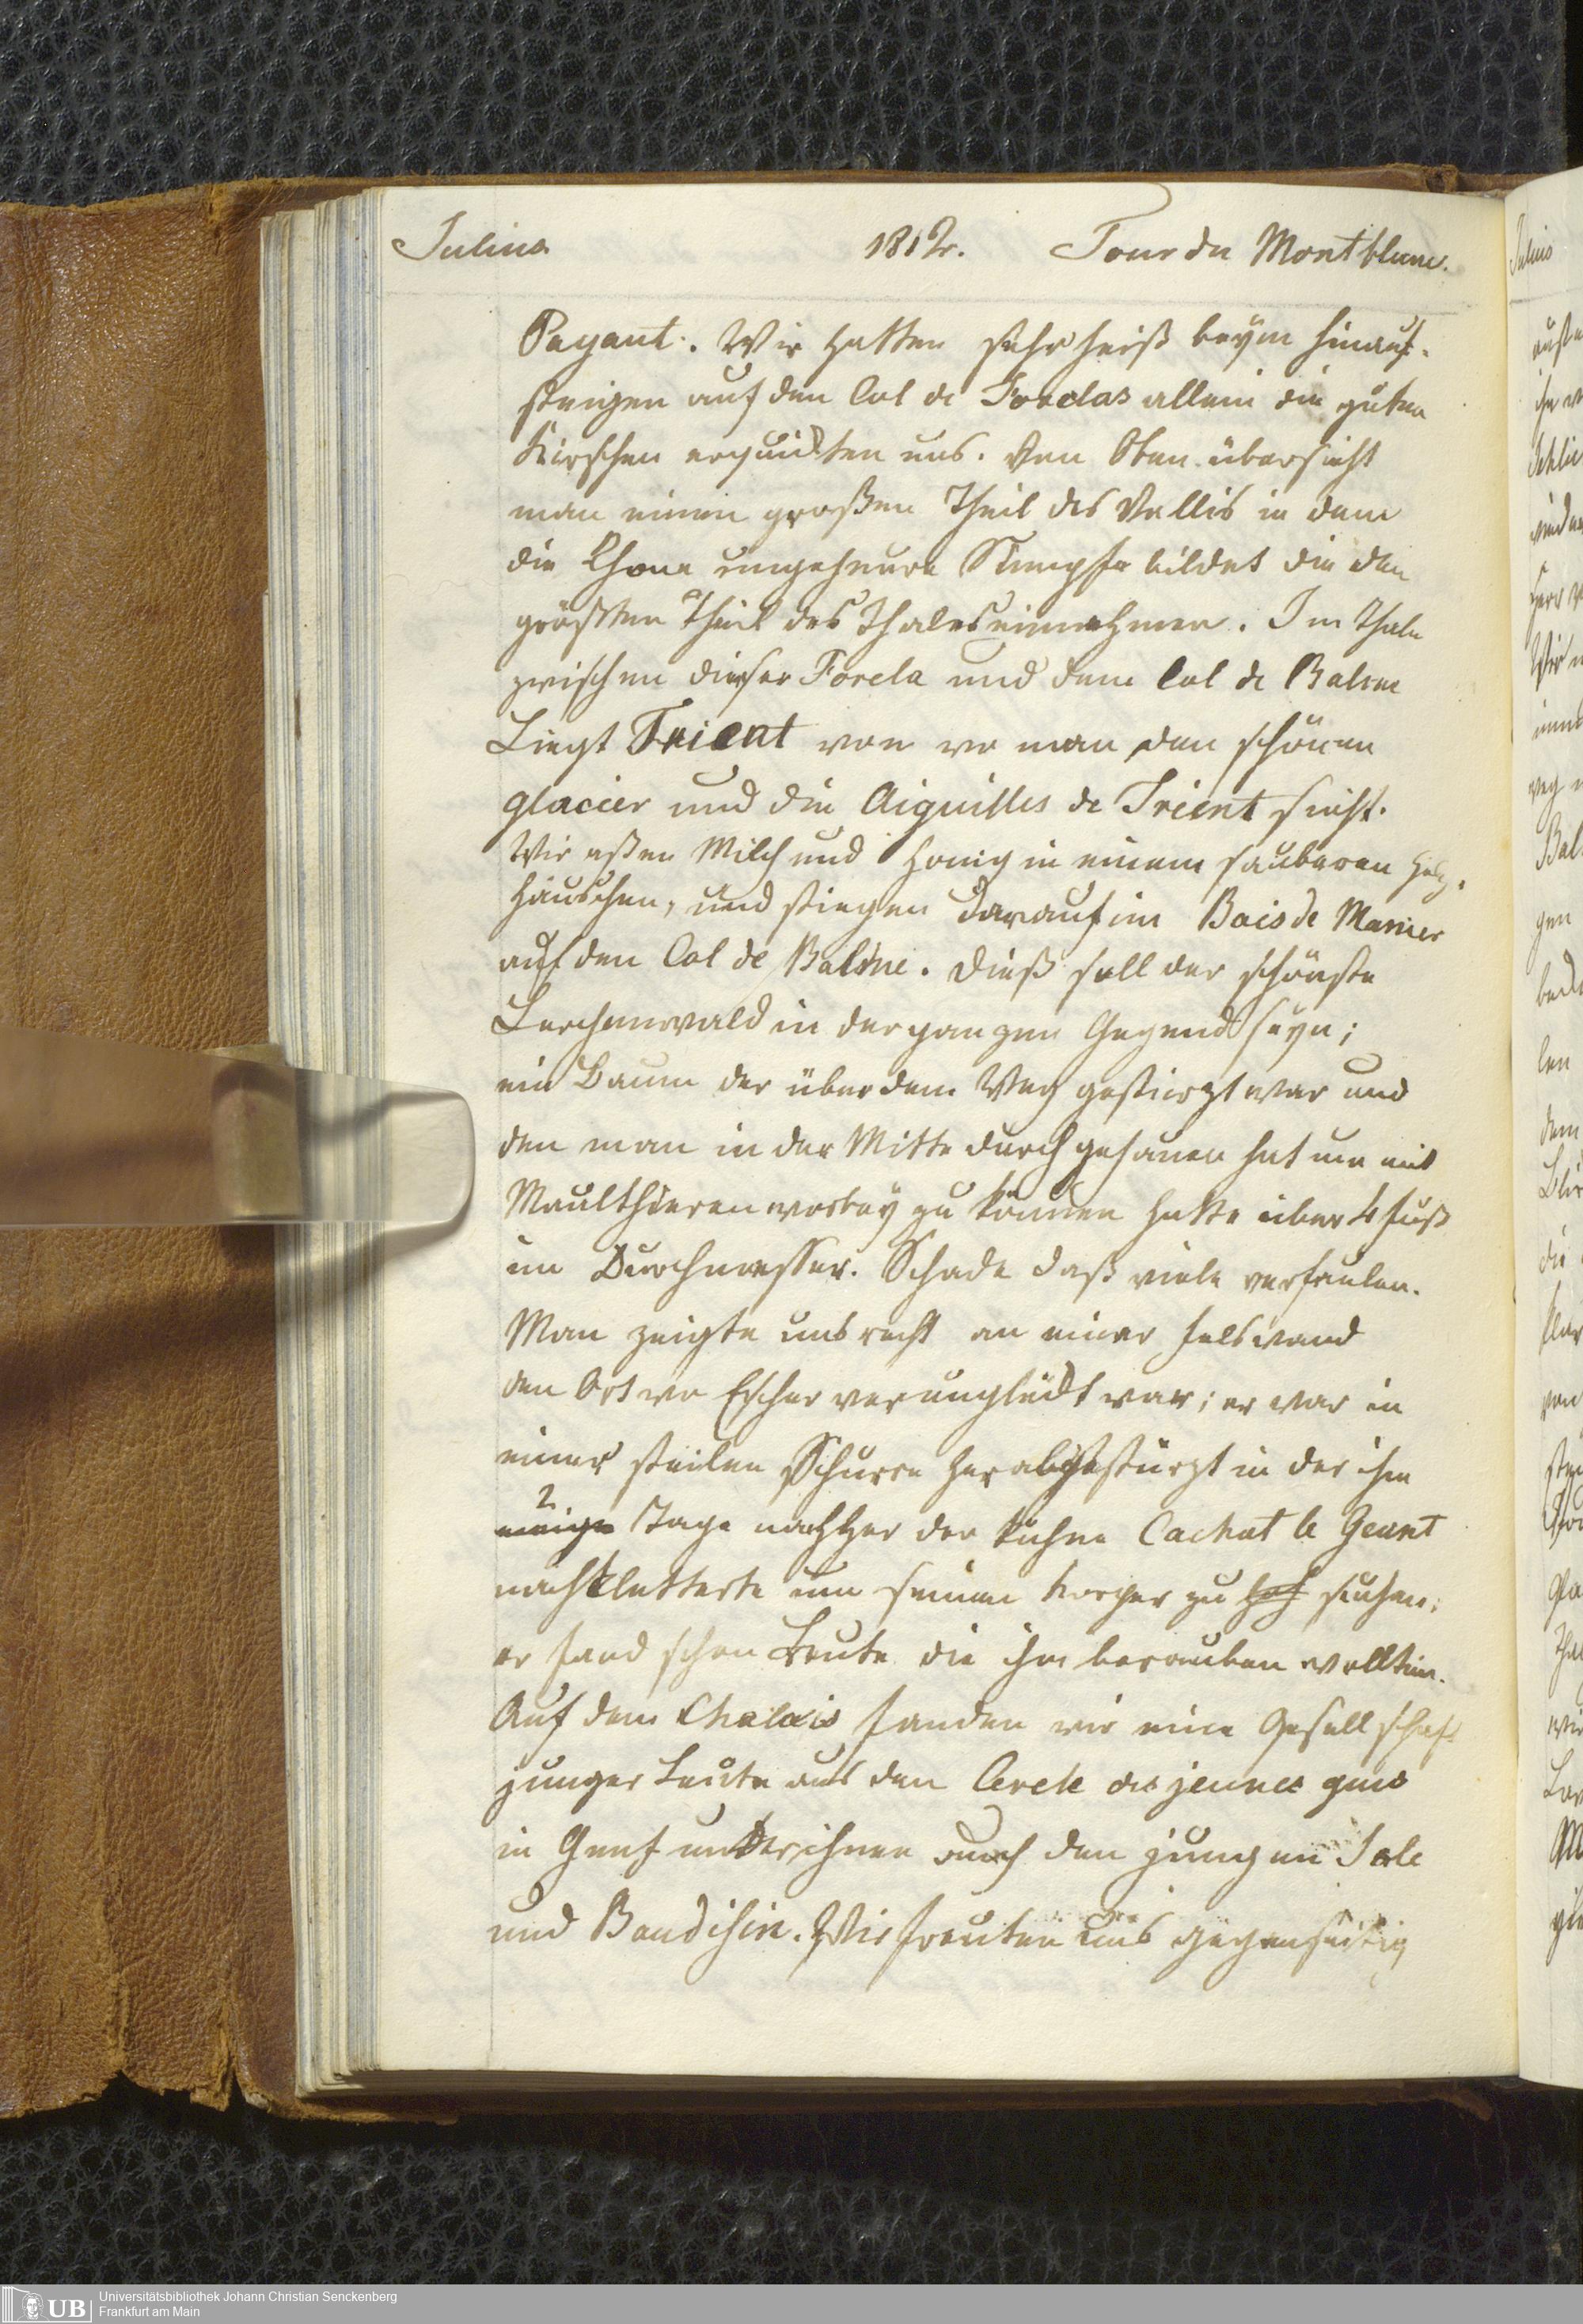 Julius 1812. Tour du Montblanc.
Payant. Wir hatten sehr heiß beym hinauf-
steigen auf den Col de Forclas allein die guten
Kirschen erquickten uns. Von Oben übersieht
man einen großen Theil des Vallis in dem
die Rhone ungeheure Sümpfe bildet die den
größten Theil des Thales einnehmen. Im Thale
zwischen dieser Forcla und dem Col de Balme
Liegt Trient von wo man den schönen
glacier und die Aiguilles de Trient sieht.
Wir aßen Milch und Honig in einem sauberen Holz-
häuschen, und stiegen darauf im Bois de Manier
auf den Col de Balme. Dieß soll der schönste
Lerchenwald in der ganzen Gegend seyn;
ein Baum der über dem Weg gestürzt war und
den man in der Mitte durchgehauen hat um mit
Maulthieren vorbey zu können hatte über 4 fuß
im Durchmesser. Schade daß viele verfaulen.
Man zeigte uns recht an einer Felswand
den Ort wo Escher verunglückt war; er war in
einer steilen Schurre herabgestürzt in der ihm
2
einige Tage nachher der kühne Cachat le Geant
nachkletterte um seinen Korper zu suchen;
er fand schon Leute die ihn berauben wollten.
Auf dem Chalais fanden wir eine Gesellschaft
junger Leute aus den Cercle des jeunes gens
in Genf unter ihnen auch den jungen
und Baudisin. Wir freuten uns gegenseitig
Julius
Universitätsbibliothek Johann Christian Senckenberg
Frankfurt am Main
UB